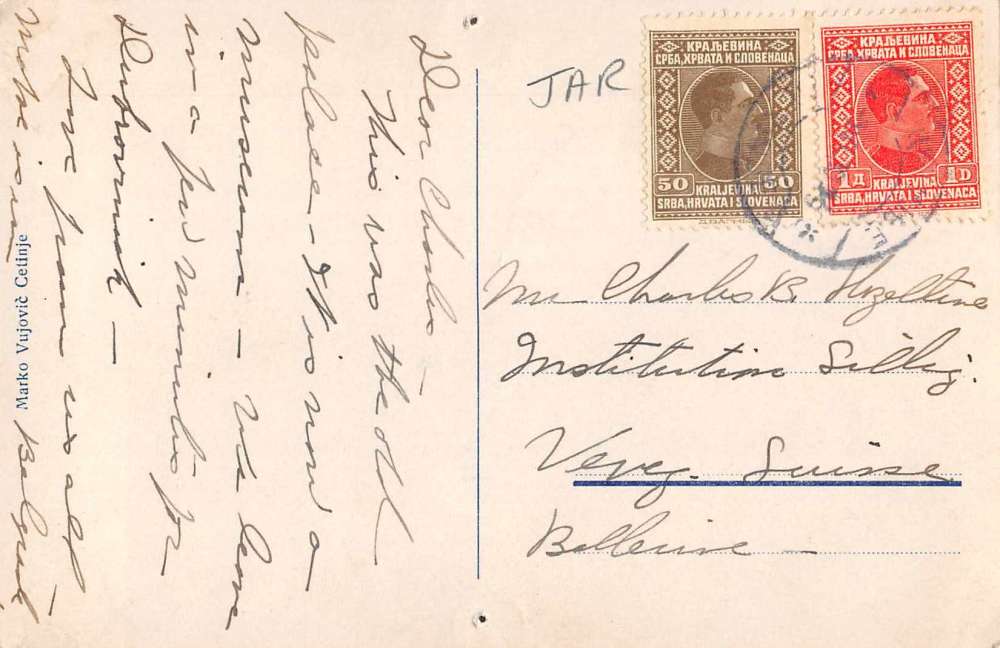 Dear Charles –
This was the old
palace – It is now a
museum – We leave
in a few minutes for
Dubrovnik –
Love from us all –
Mother is in Belgrade
Marko Vujovič Cetinje
JAR
КРАЉЕВИНА
СРБА, ХРВАТА И СЛОВЕНАЦА
50 50
KRALJEVINA
SRBA, HRVATA I SLOVENACA
КРАЉЕВИНА
СРБА, ХРВАТА И СЛОВЕНАЦА
1Д 1D
KRALJEVINA
SRBA, HRVATA I SLOVENACA
Mr Charles B. Hazeltine
Institution Sillig.
Vevey. Suisse.
Bellerive –